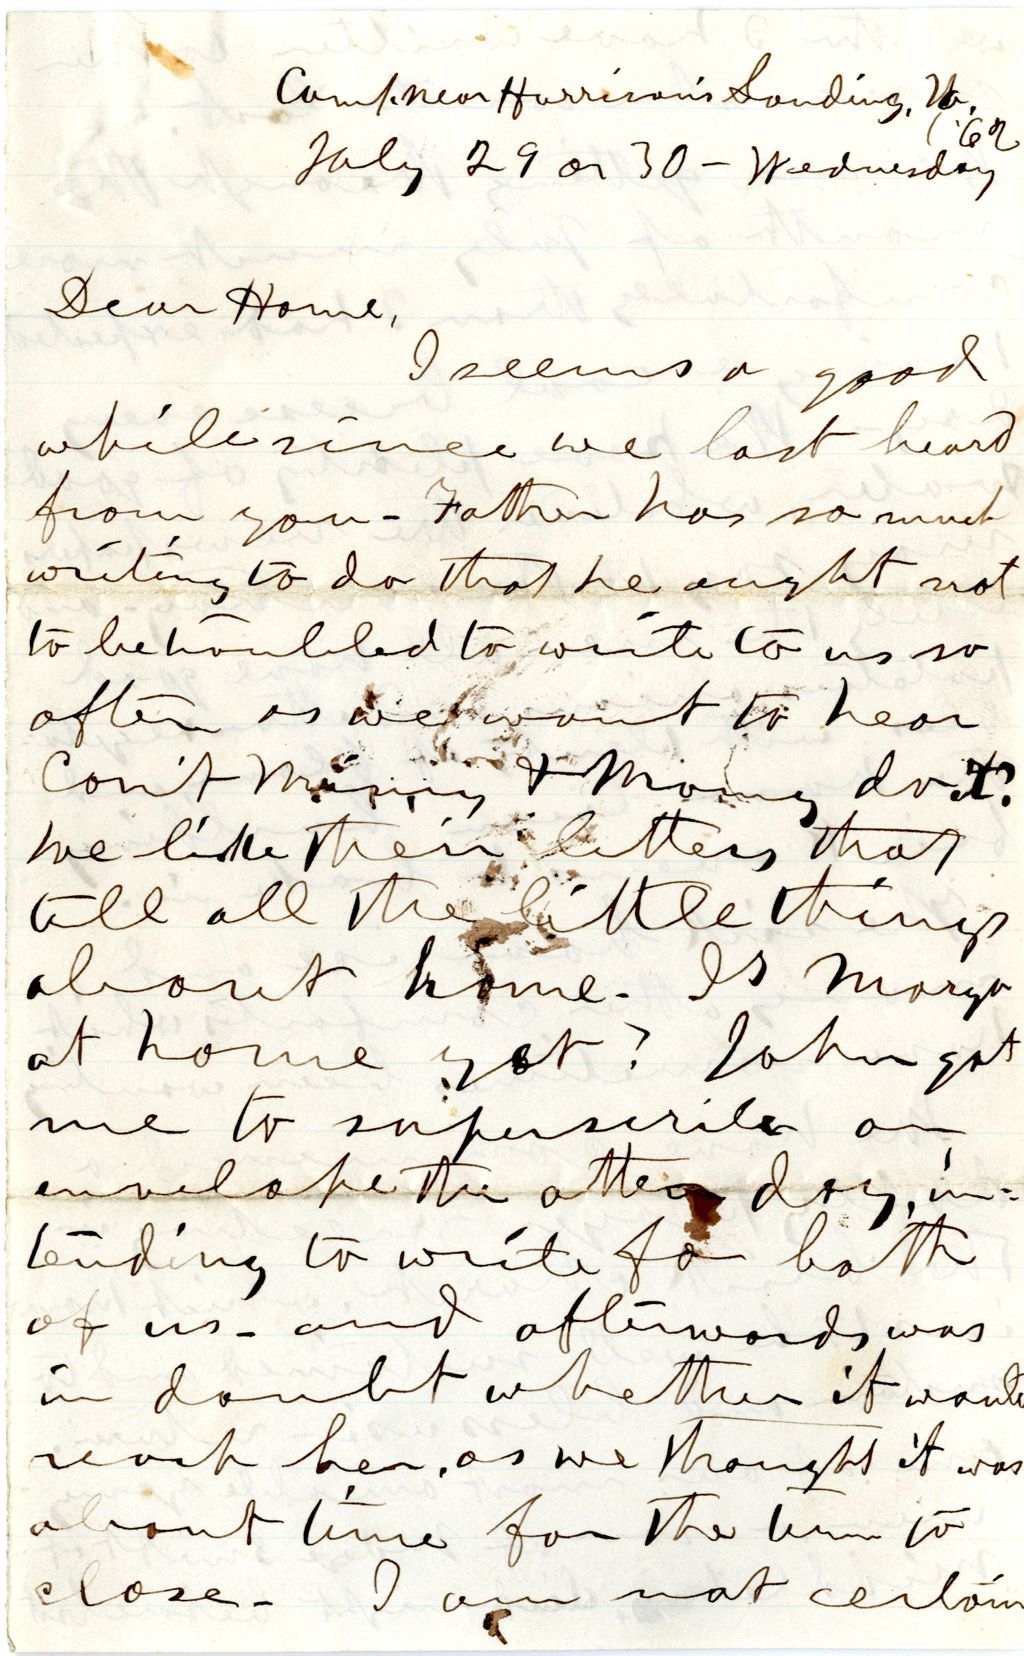 Camp near Harrison's Landing, Va.
('62
July 29 or 30 - Wednesday
Dear Home,
I seems a good
while since we last heard
from you - Father has so much
writing to do that he ought not
to be troubled to write to us so
often as we want to hear
Con't Minny & Mary do it?
We like their letters that
tell all the little things
about home. Is Marga
at home yet? John got
me to superscribe an
envelope the other day, in-
tending to write fo both
of us - and afterwards was
in doubt whether it would
reach her, as we thought it was
about time for the term to
close - I am not certain